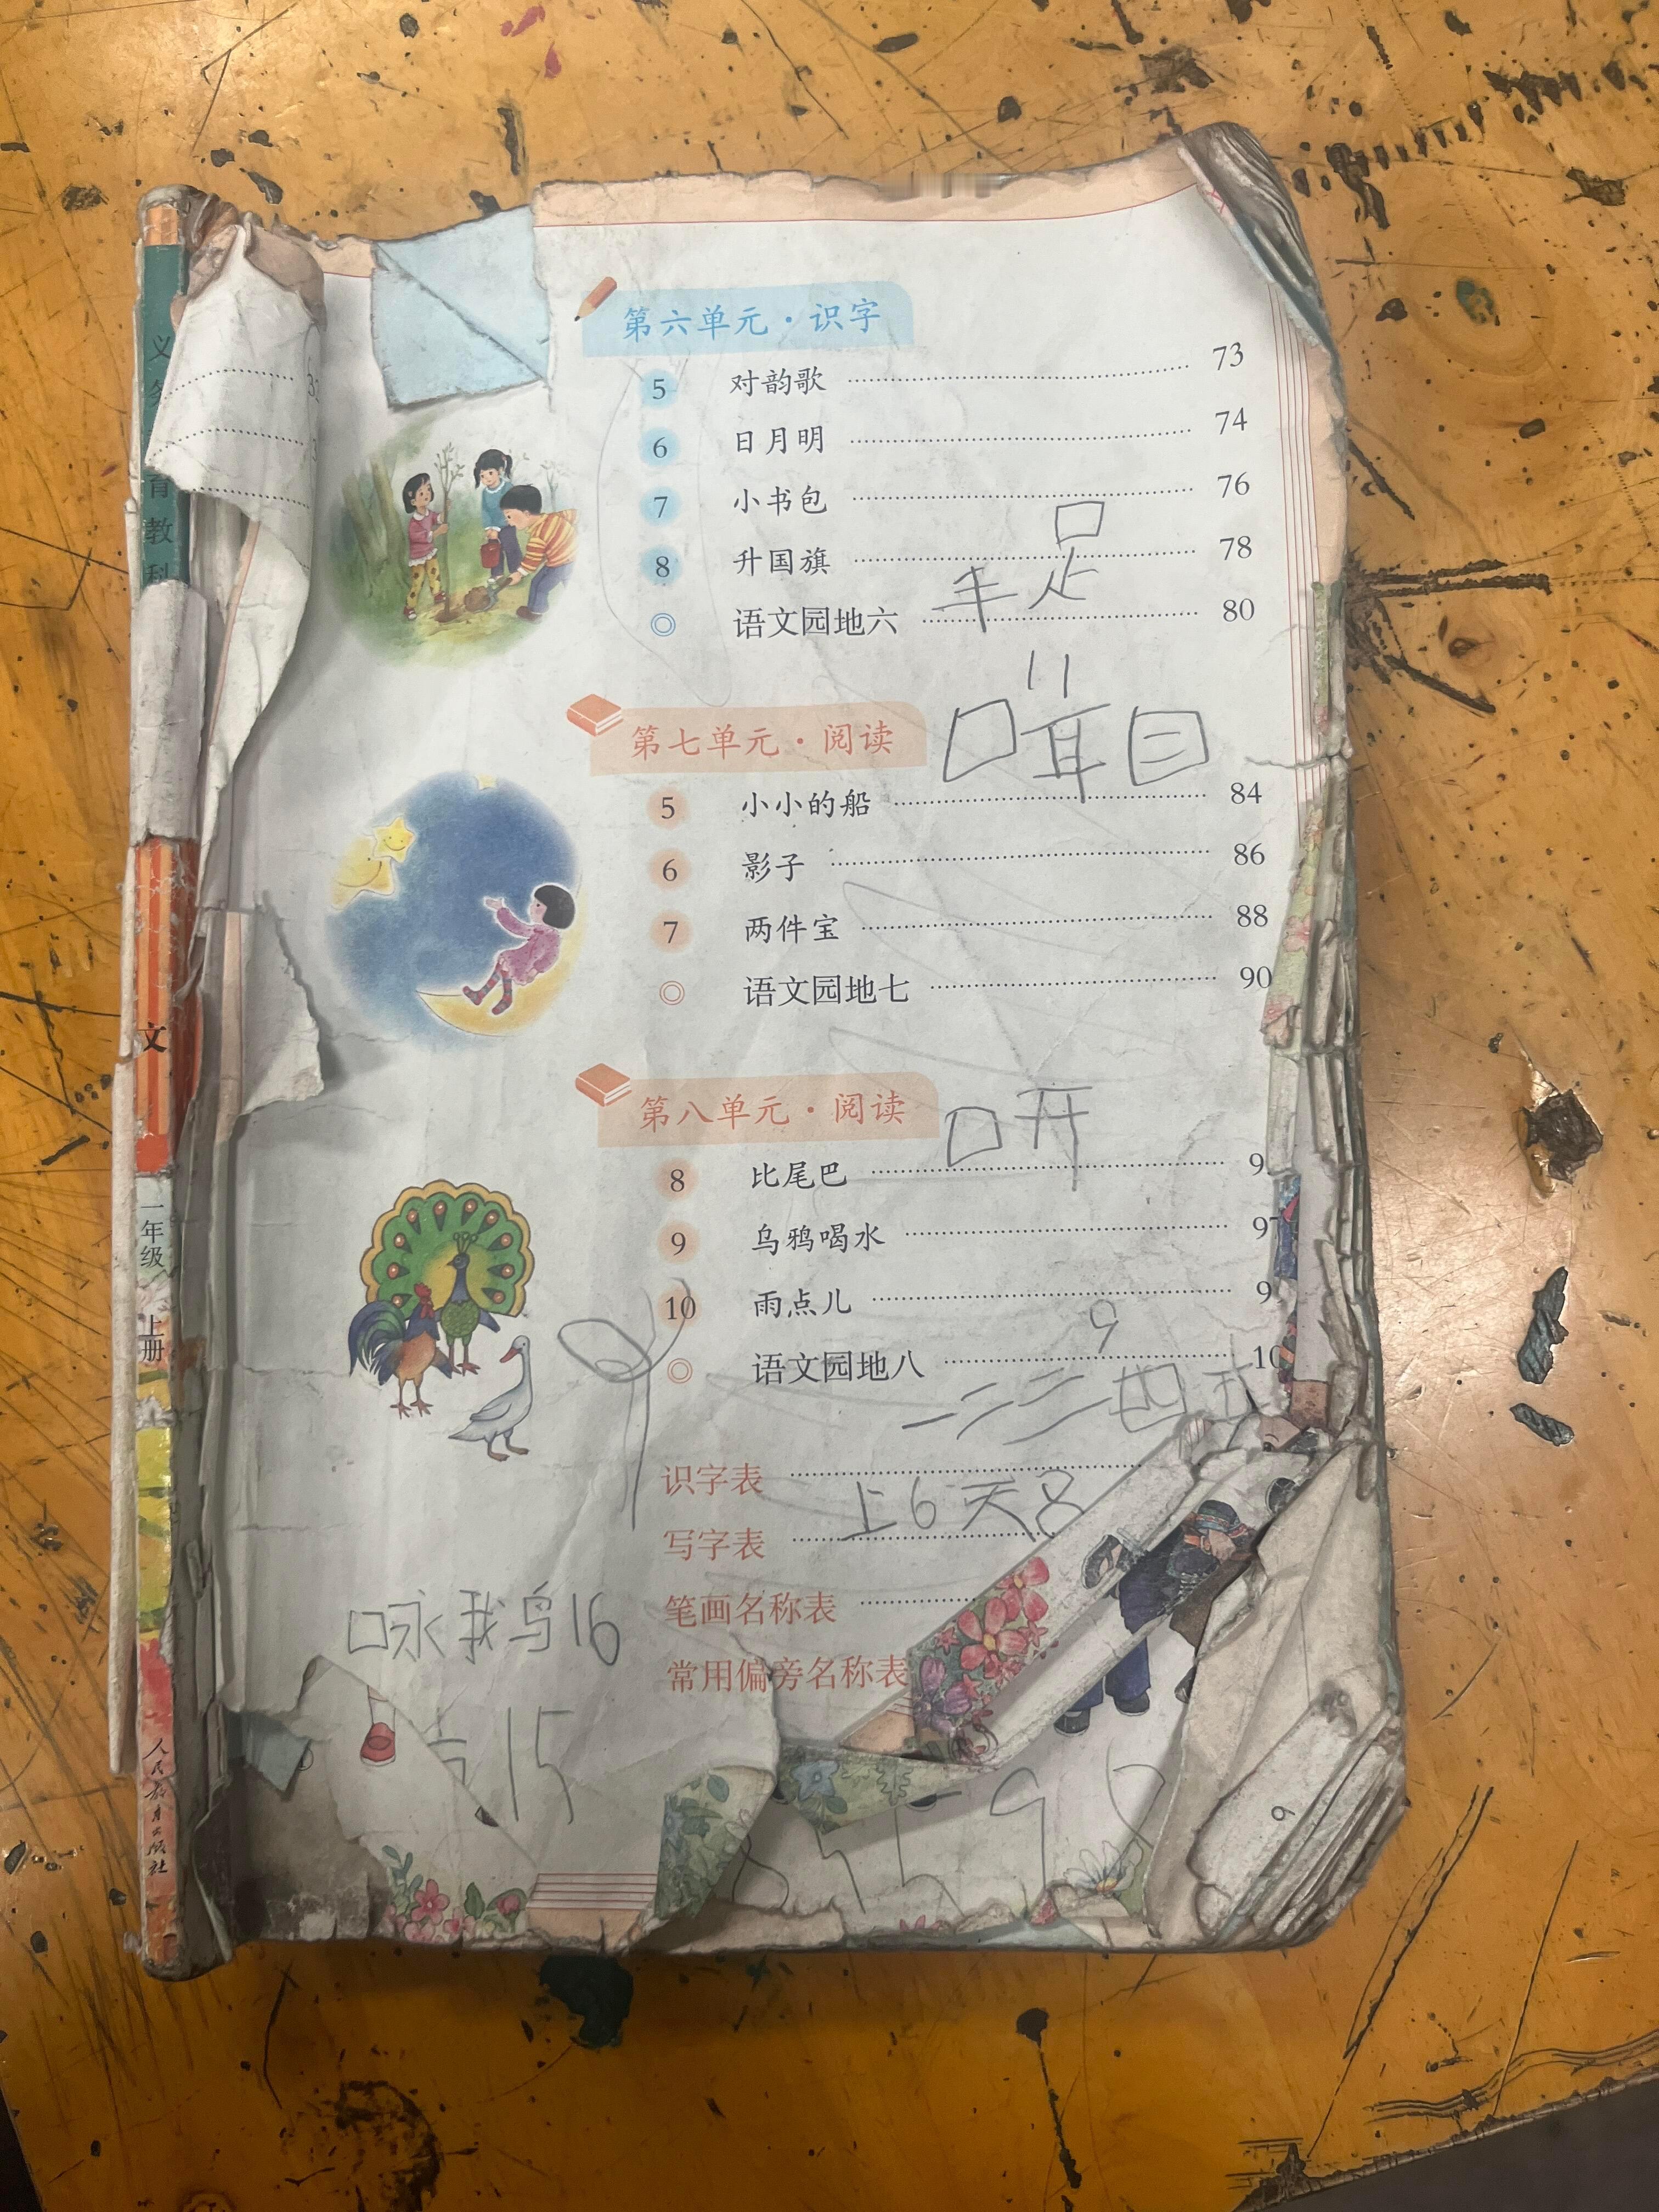 第六单元·识字
5 对韵歌 73
6 日月明 74
7 小书包 76
8 升国旗 78
◎ 语文园地六 80
手足
11
第七单元·阅读
口耳目
5 小小的船 84
6 影子 86
7 两件宝 88
◎ 语文园地七 90
第八单元·阅读
口开
8 比尾巴 9
9 乌鸦喝水 97
10 雨点儿 9
9
◎ 语文园地八 10
一二三四五
识字表
上6天8
写字表
笔画名称表
常用偏旁名称表
16
15
9
9
育教科
文
一年级
上册
人民教育出版社